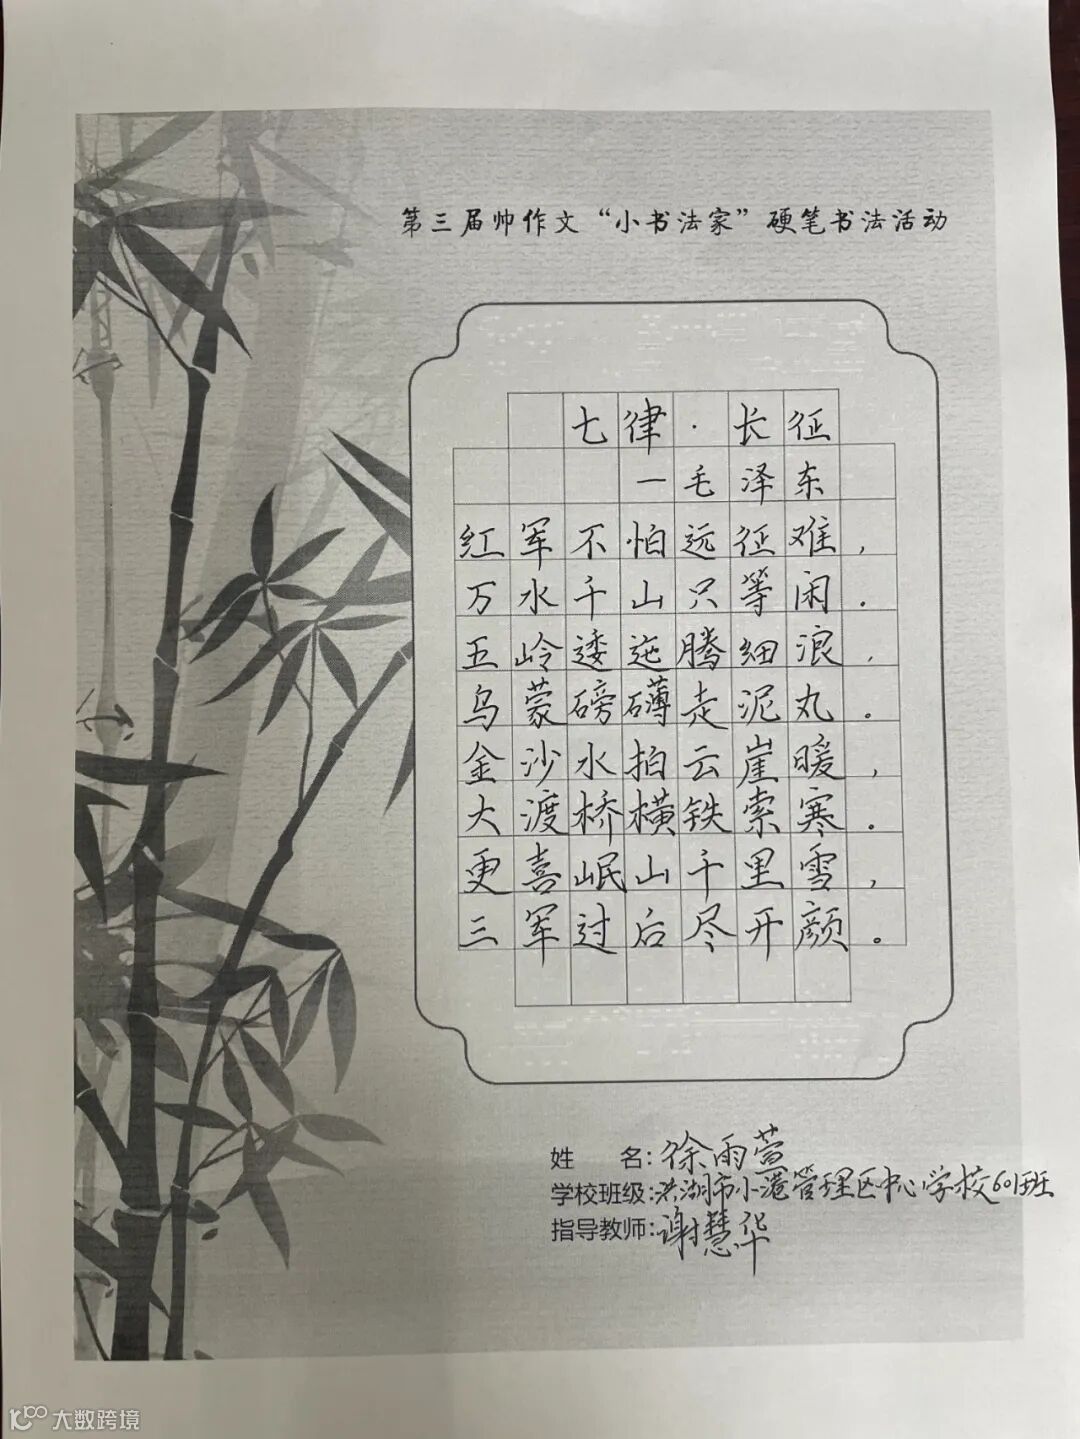 第三届帅作文“小书法家”硬笔书法活动
七律·长征
一毛泽东
红军不怕远征难，
万水千山只等闲.
五岭逶迤腾细浪，
乌蒙磅礴走泥丸.
金沙水拍云崖暖，
大渡桥横铁索寒.
更喜岷山千里雪，
三军过后尽开颜。
姓 名:徐雨萱
学校班级:洪湖市小港管理区中心学校601班
指导教师:谢慧华
大数跨境